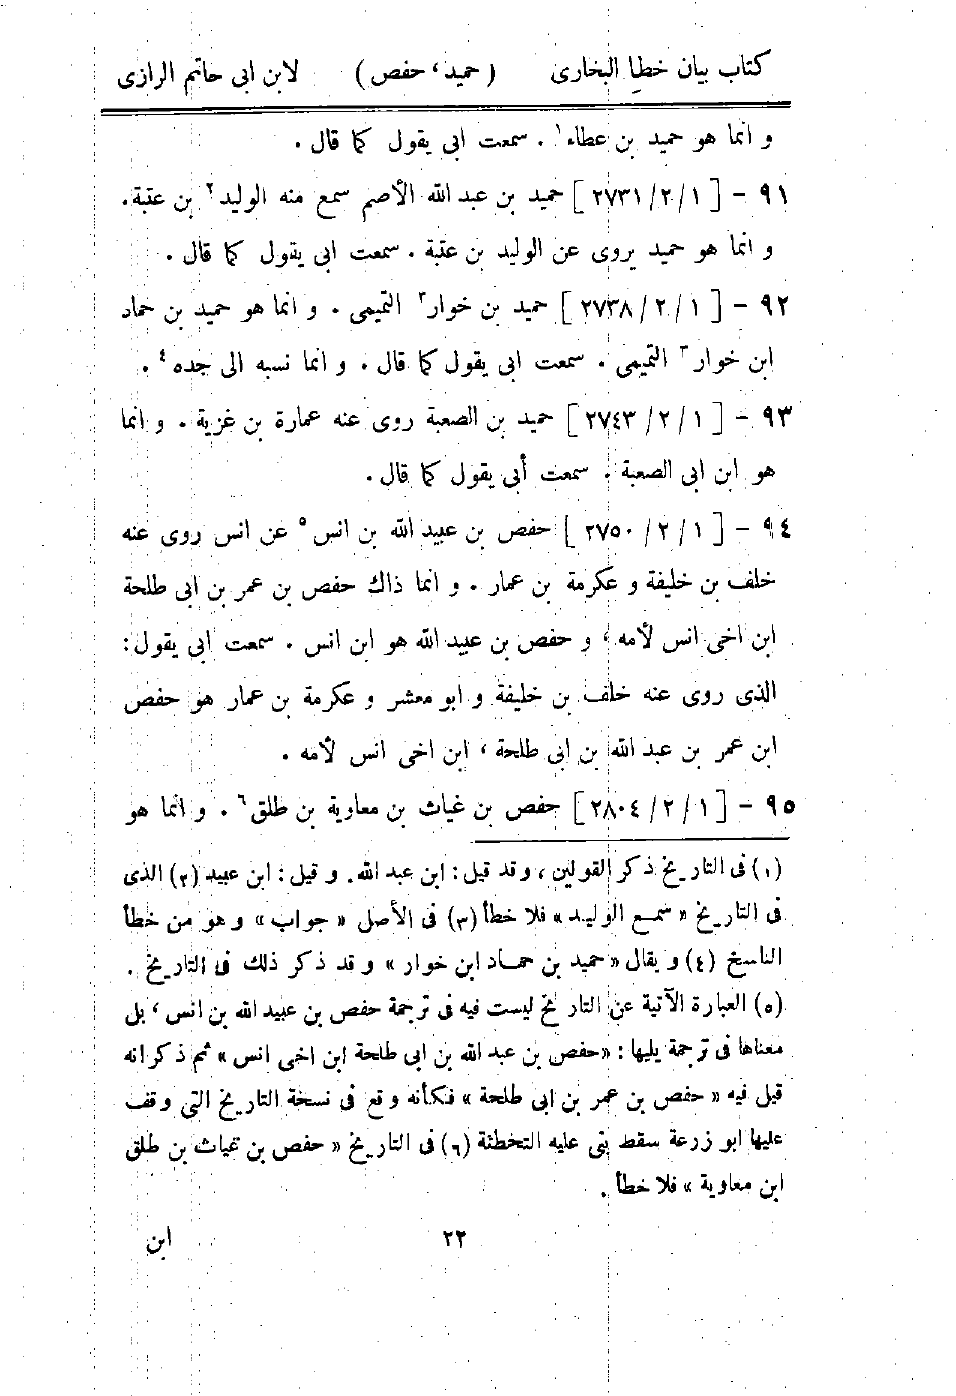 كتاب بيان خطإ البخارى ( حميد ، حفص ) لابن ابى حاتم الرازى
و انما هو حميد بن عطاء١ . سمعت ابى يقول كما قال .
٩١ - [ ١ / ٢ / ٢٧٣١ ] حميد بن عبد الله الأصم سمع منه الوليد٢ بن عتبة .
و انما هو حميد يروى عن الوليد بن عتبة . سمعت ابى يقول كما قال .
٩٢ - [ ١ / ٢ / ٢٧٣٨ ] حميد بن خوار٣ التميمى . و انما هو حميد بن حماد
ابن خوار٣ التميمى . سمعت ابى يقول كما قال . و انما نسبه الى جده٤ .
٩٣ - [ ١ / ٢ / ٢٧٤٣ ] حميد بن الصعبة روى عنه عمارة بن غزية . و انما
هو ابن ابى الصعبة . سمعت أبى يقول كما قال .
٩٤ - [ ١ / ٢ / ٢٧٥٠ ] حفص بن عبيد الله بن انس٥ عن انس روى عنه
خلف بن خليفة و عكرمة بن عمار . و انما ذاك حفص بن عمر بن ابى طلحة
ابن اخى انس لأمه ، و حفص بن عبيد الله هو ابن انس . سمعت ابى يقول :
الذى روى عنه خلف بن خليفة و ابو معشر و عكرمة بن عمار هو حفص
ابن عمر بن عبد الله بن ابى طلحة ، ابن اخى انس لأمه .
٩٥ - [ ١ / ٢ / ٢٨٠٤ ] حفص بن غياث بن معاوية بن طلق٦ . و انما هو
(١) فى التاريخ ذكر القولين ، وقد قيل : ابن عبد الله . و قيل : ابن عبيد (٢) الذى
فى التاريخ « سمع الوليد » فلا خطأ (٣) فى الأصل « جواب » و هو من خطأ
الناسخ (٤) و يقال « حميد بن حماد ابن خوار » و قد ذكر ذلك فى التاريخ .
(٥) العبارة الآتية عن التاريخ ليست فيه فى ترجمة حفص بن عبيد الله بن انس ، بل
معناها فى ترجمة يليها : « حفص بن عبد الله بن ابى طلحة ابن اخى انس » ثم ذكر انه
قيل فيه « حفص بن عمر بن ابى طلحة » فكأنه وقع فى نسخة التاريخ التى وقف
عليها ابو زرعة سقط بنى عليه التخطئة (٦) فى التاريخ « حفص بن غياث بن طلق
ابن معاوية » فلا خطأ .
٢٢ ابن